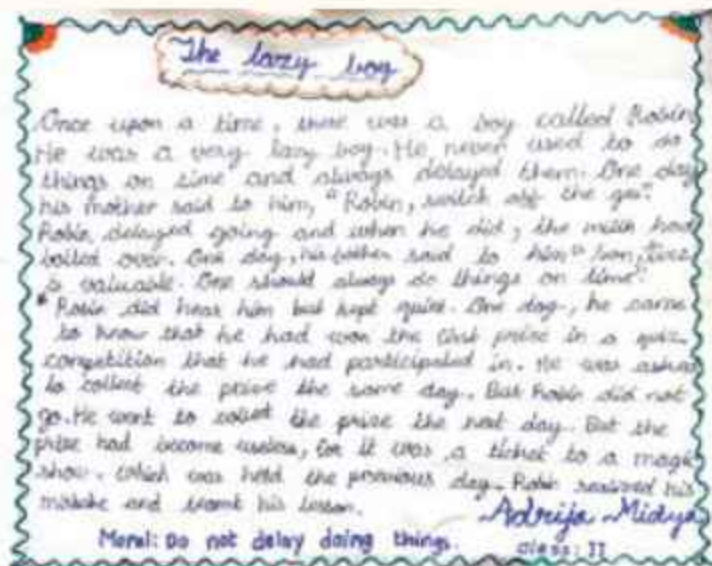 The lazy boy
Once upon a time, there was a boy called Robin
He was a very lazy boy. He never used to do
things on time and always delayed them. One day
his mother said to him, "Robin, switch off the gas".
Robin delayed going and when he did, the milk had
boiled over. One day, his father said to him "Son, time
is valuable. One should always do things on time".
Robin did hear him but kept quiet. One day, he came
to know that he had won the first prize in a quiz
competition that he had participated in. He was asked
to collect the prize the same day. But Robin did not
go. He went to collect the prize the next day. But the
prize had become useless, for it was a ticket to a magic
show. which was held the previous day. Robin realised his
mistake and learnt his lesson.
Adrija Midya
Moral: Do not delay doing things.
class: II